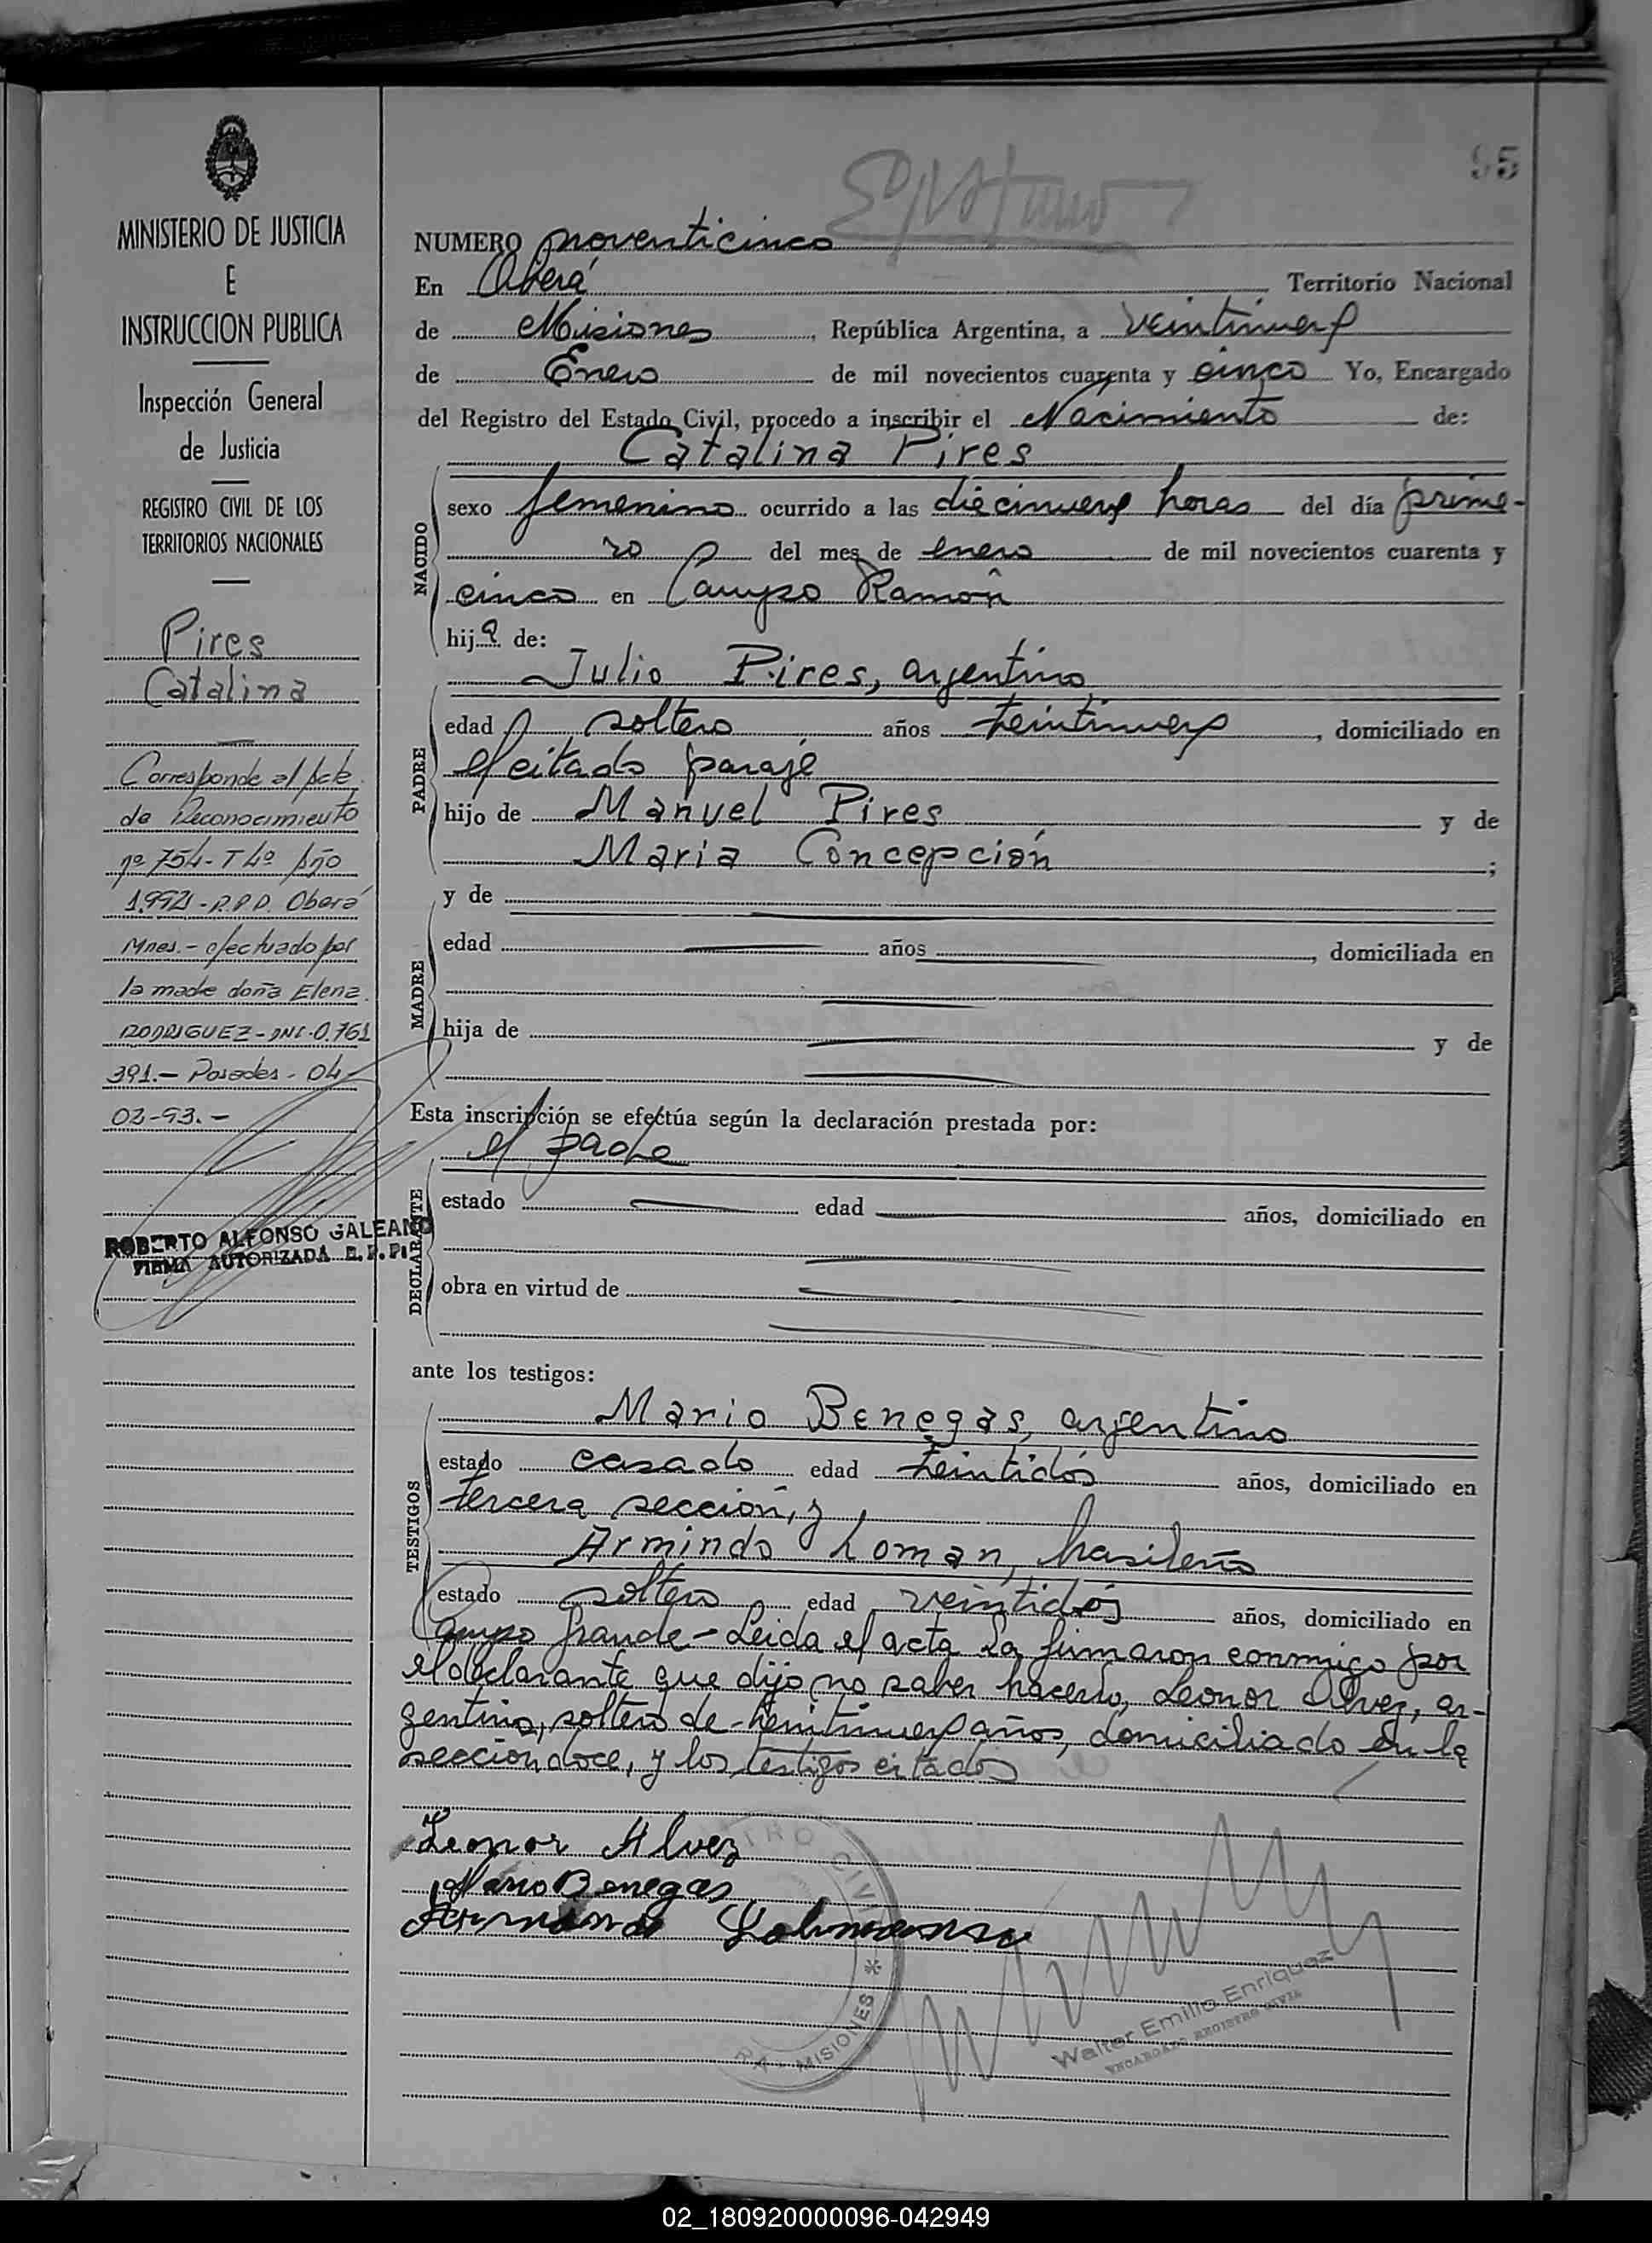 95
MINISTERIO DE JUSTICIA
E
INSTRUCCION PUBLICA
Inspección General
de Justicia
REGISTRO CIVIL DE LOS
TERRITORIOS NACIONALES
Pires
Catalina
Corresponde al Acta
de Reconocimiento
nº 754- T4º Año
1.992 - R.P.P. Oberá
Mnes.- efectuado por
la madre doña Elena
RODRIGUEZ - DNI-0.761
391.- Posadas - 04-
02-93.-
ROBERTO ALFONSO GALEANO
FIRMA AUTORIZADA R.P.P.
NUMERO noventicinco
En Oberá Territorio Nacional
de Misiones, República Argentina, a veintinueve
de Enero de mil novecientos cuarenta y cinco Yo, Encargado
del Registro del Estado Civil, procedo a inscribir el Nacimiento de:
Catalina Pires
NACIDO
sexo femenino ocurrido a las diecinueve horas del día prime-
ro del mes de enero de mil novecientos cuarenta y
cinco en Campo Ramón
hija de:
Julio Pires, argentino
PADRE
edad soltero años treintinueve, domiciliado en
el citado paraje
hijo de Manuel Pires y de
Maria Concepción ;
MADRE
y de
edad años , domiciliada en
hija de y de
Esta inscripción se efectúa según la declaración prestada por:
el padre
DECLARANTE
estado edad años, domiciliado en
obra en virtud de
ante los testigos:
TESTIGOS
Mario Benegas, argentino
estado casado edad treintidós años, domiciliado en
tercera sección, y
Armindo Loman, brasileño
estado soltero edad veintidós años, domiciliado en
Campo Grande - Leida el acta la firmaron conmigo por
el declarante que dijo no saber hacerlo, Leonor Alvez, ar-
gentino, soltero de treintinueve años, domiciliado en la
seccion doce, y los testigos citados
Leonor Alvez
Mario Benegas
Lohmann
REGISTRO CIVIL * MISIONES
Walter Emilio Enriquez
ENCARGADO REGISTRO CIVIL
02_180920000096-042949